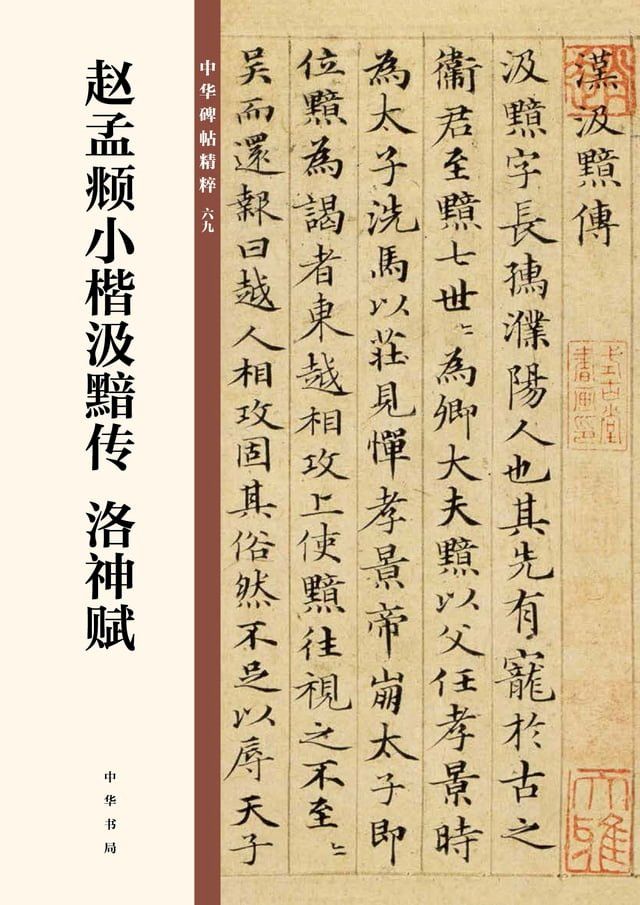 赵孟𫖯小楷汲黯传 洛神赋
中华书局
中华碑帖精粹 六九
漢汲黯傳
汲黯字長孺濮陽人也其先有寵於古之
衞君至黯七世〻為卿大夫黯以父任孝景時
為太子洗馬以莊見憚孝景帝崩太子即
位黯為謁者東越相攻上使黯往視之不至〻
吳而還報曰越人相攻固其俗然不足以辱天子
式古堂
書画印
大雅